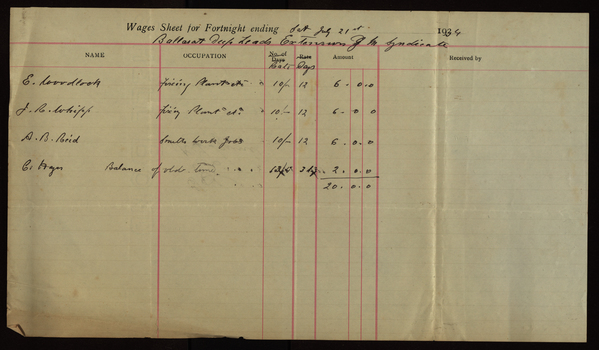 Wages Sheet for Fortnight ending Sat July 21st 1934
Ballarat Deep Leads Extension G. M. Syndicate
NAME OCCUPATION No. of Days Rate Rate Days Amount Received by
E. Woodlock fixing Plant etc " 10/- 12 6 . 0 . 0
J. R. Whipp fixing Plant etc. 10/- 12 6 - 0 . 0
A. B. Reid Smiths work Jobs 10/- 12 6 . 0 . 0
C. Balance of old time " " 2 . 0 . 0
20 . 0 . 0